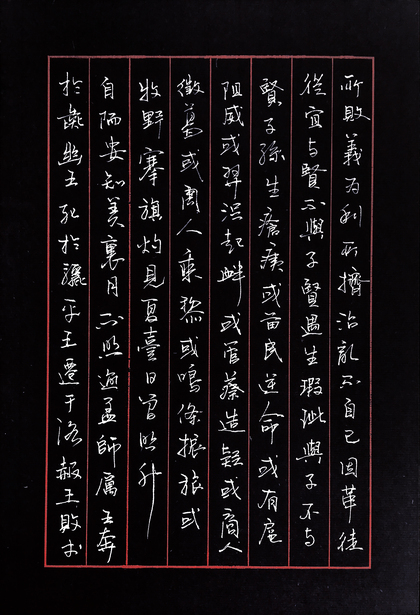 所敗義为利所擠治亂不自己因革徒
從宜与賢不與子賢遇生瑕玼與子不与
賢子孫生瘡痍或苗民逆命或有扈
阻威或羿浞起衅或管蔡造疑或商人
徵葛或周人乘黎或鳴條振旅或
牧野搴旗灼見夏臺日曾照升
自陑安知羑里月不照逾孟師厲王奔
於彘幽王死於驪平王遷于洛赧王敗於